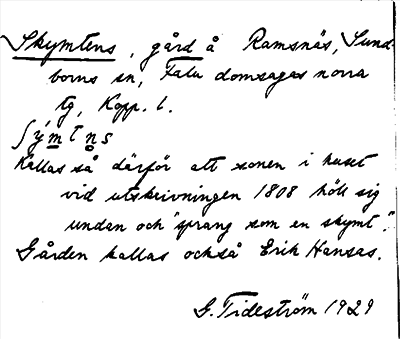 Skymtens, gård å Ramsnäs, Sund-
borns sn, Falu domsagas norra
tg, Kopp. l.
ʃýmtn̥s
Kallas så därför att sonen i huset
vid utskrivningen 1808 höll sig
undan och "sprang som en skymt".
Gården kallas också Erik Hansas.
G. Tideström 1929